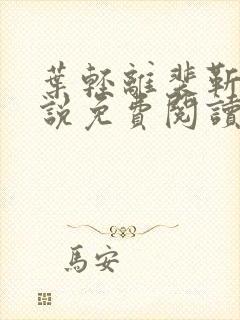 葉輕離裴靳
說免費閱讀
馬安